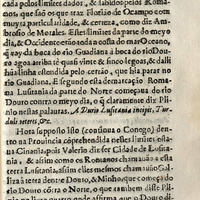 cada pelos limites dados, & sabidos pelos
mos, que são os que traz Florião de Ocampo com
muyta particularidade, & certeza, como diz Am-
brosio de Morales. Estes limites da parte do meyo
dia, & Occidente estão na costa do mar do cabo
da boca do rio Guadiana, ate a boca do rio Dou
ro agoa arriba tè quasi vinte & sinco legoas, & dalli
hũa linha estendida pelo certão, que hia parar no
rio Guadiana. E segundo esta demarcação Roma-
na Lusitania da parte do Norte começaua do rio
Douro contra o meyo dia, o q̃ claramente diz Pli-
nio nestas palauras. A Durio Lusitania incipit, Tur-
duli veteres, &c.
Hora supposto isto (continua o Conego) den-
tro na Prouincia cõprehendida nestes limites esta-
ua Cinania, pois Valerio diz ser Cidade de Lusita-
nia, & assim como os Romanos chamauão a esta
terra Lusitania, assim elles mesmos chamauão Gal-
liza à terra dentre Douro, & Minho, que começa do
rio Douro cõtra o Norte, o que tambem diz Pli-